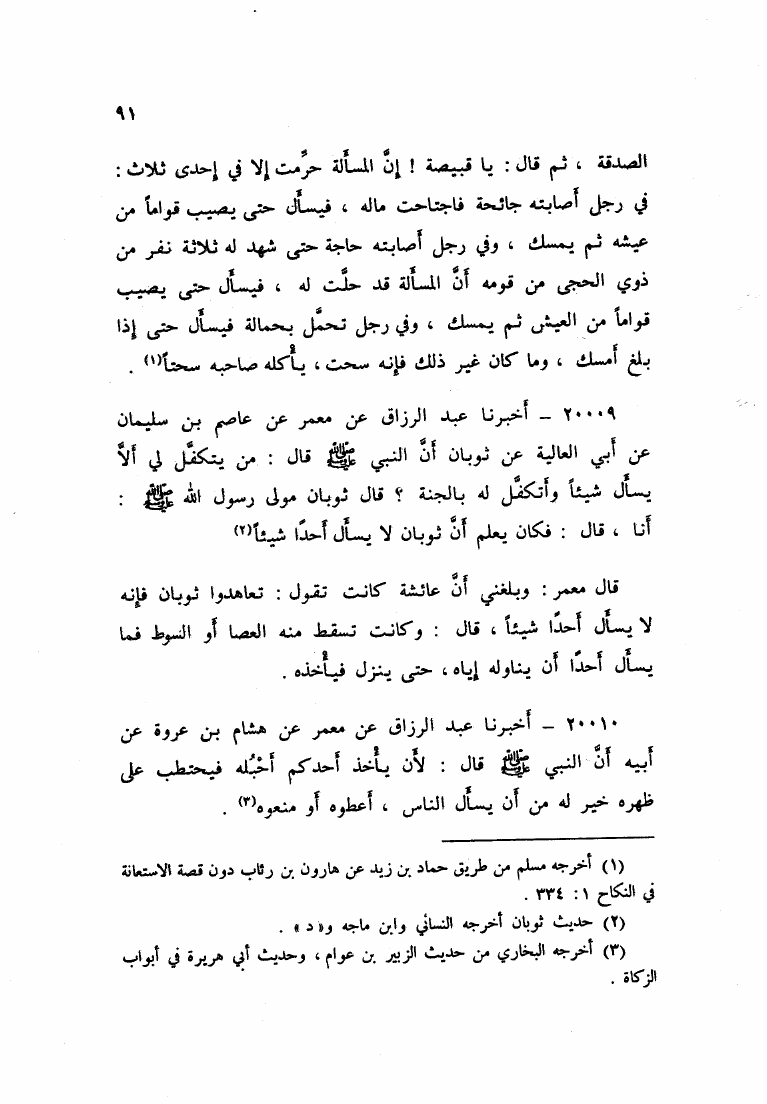 ٩١
الصدقة ، ثم قال : يا قبيصة ! إنَّ المسأَلة حرِّمت إلا في إحدى ثلاث :
في رجل أَصابته جائحة فاجتاحت ماله ، فيسأَل حتى يصيب قواماً من
عيشه ثم يمسك ، وفي رجل أَصابته حاجة حتى شهد له ثلاثة نفر من
ذوي الحجى من قومه أَنَّ المسأَلة قد حلَّت له ، فيسأَل حتى يصيب
قواماً من العيش ثم يمسك ، وفي رجل تحمَّل بحمالة فيسأَل حتى إذا
بلغ أَمسك ، وما كان غير ذلك فإنه سحت ، يأْكله صاحبه سحتاً(١) .
٢٠٠٠٩ – أَخبرنا عبد الرزاق عن معمر عن عاصم بن سليمان
عن أَبي العالية عن ثوبان أَنَّ النبي ﷺ قال : من يتكفَّل لي أَلاَّ
يسأَل شيئاً وأَتكفَّل له بالجنة ؟ قال ثوبان مولى رسول الله ﷺ :
أَنا ، قال : فكان يعلم أَنَّ ثوبان لا يسأَل أَحدًا شيئاً(٢)
قال معمر : وبلغني أَنَّ عائشة كانت تقول : تعاهدوا ثوبان فإنه
لا يسأَل أَحدًا شيئاً ، قال : وكانت تسقط منه العصا أَو السوط فما
يسأَل أَحدًا أَن يناوله إياه ، حتى ينزل فيأْخذه .
٢٠٠١٠ – أَخبرنا عبد الرزاق عن معمر عن هشام بن عروة عن
أَبيه أَنَّ النبي ﷺ قال : لأَن يأْخذ أَحدكم أَحْبُله فيحتطب على
ظهره خير له من أَن يسأَل الناس ، أَعطوه أَو منعوه(٣) .
(١) أخرجه مسلم من طريق حماد بن زيد عن هارون بن رئاب دون قصة الاستعانة
في النكاح ١ : ٣٣٤ .
(٢) حديث ثوبان أخرجه النسائي وابن ماجه و« د » .
(٣) أخرجه البخاري من حديث الزبير بن عوام ، وحديث أبي هريرة في أبواب
الزكاة .